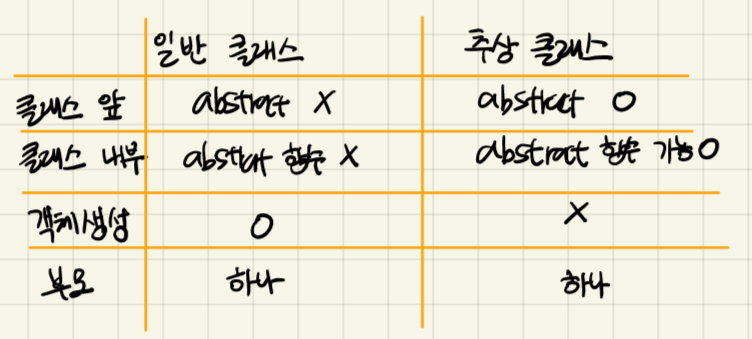 일반 클래스 추상 클래스
클래스 앞 abstract X abstract O
클래스 내부 abstrat 함수 X abstract 함수 가능 O
객체생성 O X
부모 하나 하나